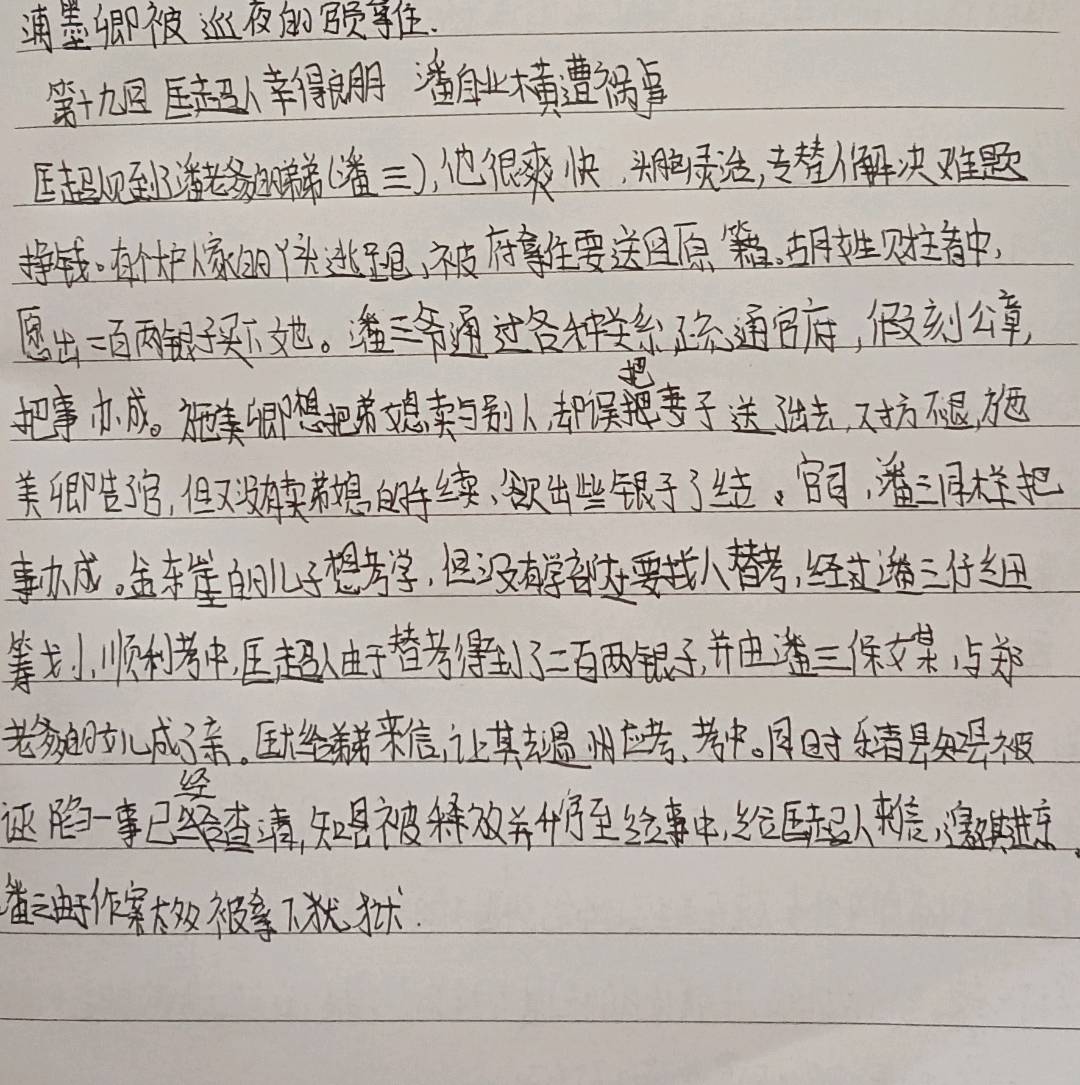 浦墨卿被巡夜的官员拿住.
第十九回 匡超人幸得良朋 潘自业横遭祸事
匡超人见到了潘老爹的弟弟(潘三),他很爽快,头脑灵活,专替人解决难题
挣钱。有个大户人家的丫头逃跑,被府拿住要送回原籍。胡姓财主看中,
愿出二百两银子买下她。潘三爷通过各种关系疏通官府,假刻公章,
把事办成。施美卿想把弟媳卖与别人,却误把妻子送了出去,对方不退,施
美卿告了官,但又没有卖弟媳的手续,欲出些银子了结。官司,潘三同样把
事办成。金东崖的儿子想考学,但没有学问,要找人替考,经过潘三仔细
筹划,顺利考中,匡超人由于替考得到了二百两银子,并由潘三保媒,与郑
老爹的女儿成了亲。匡大给弟弟来信,让其去温州应考,考中。同时乐清县知县被
诬陷一事已经查清,知县被释放并升官至给事中,给匡超人来信,邀其进京。
潘三由于作案太多被拿下狱.